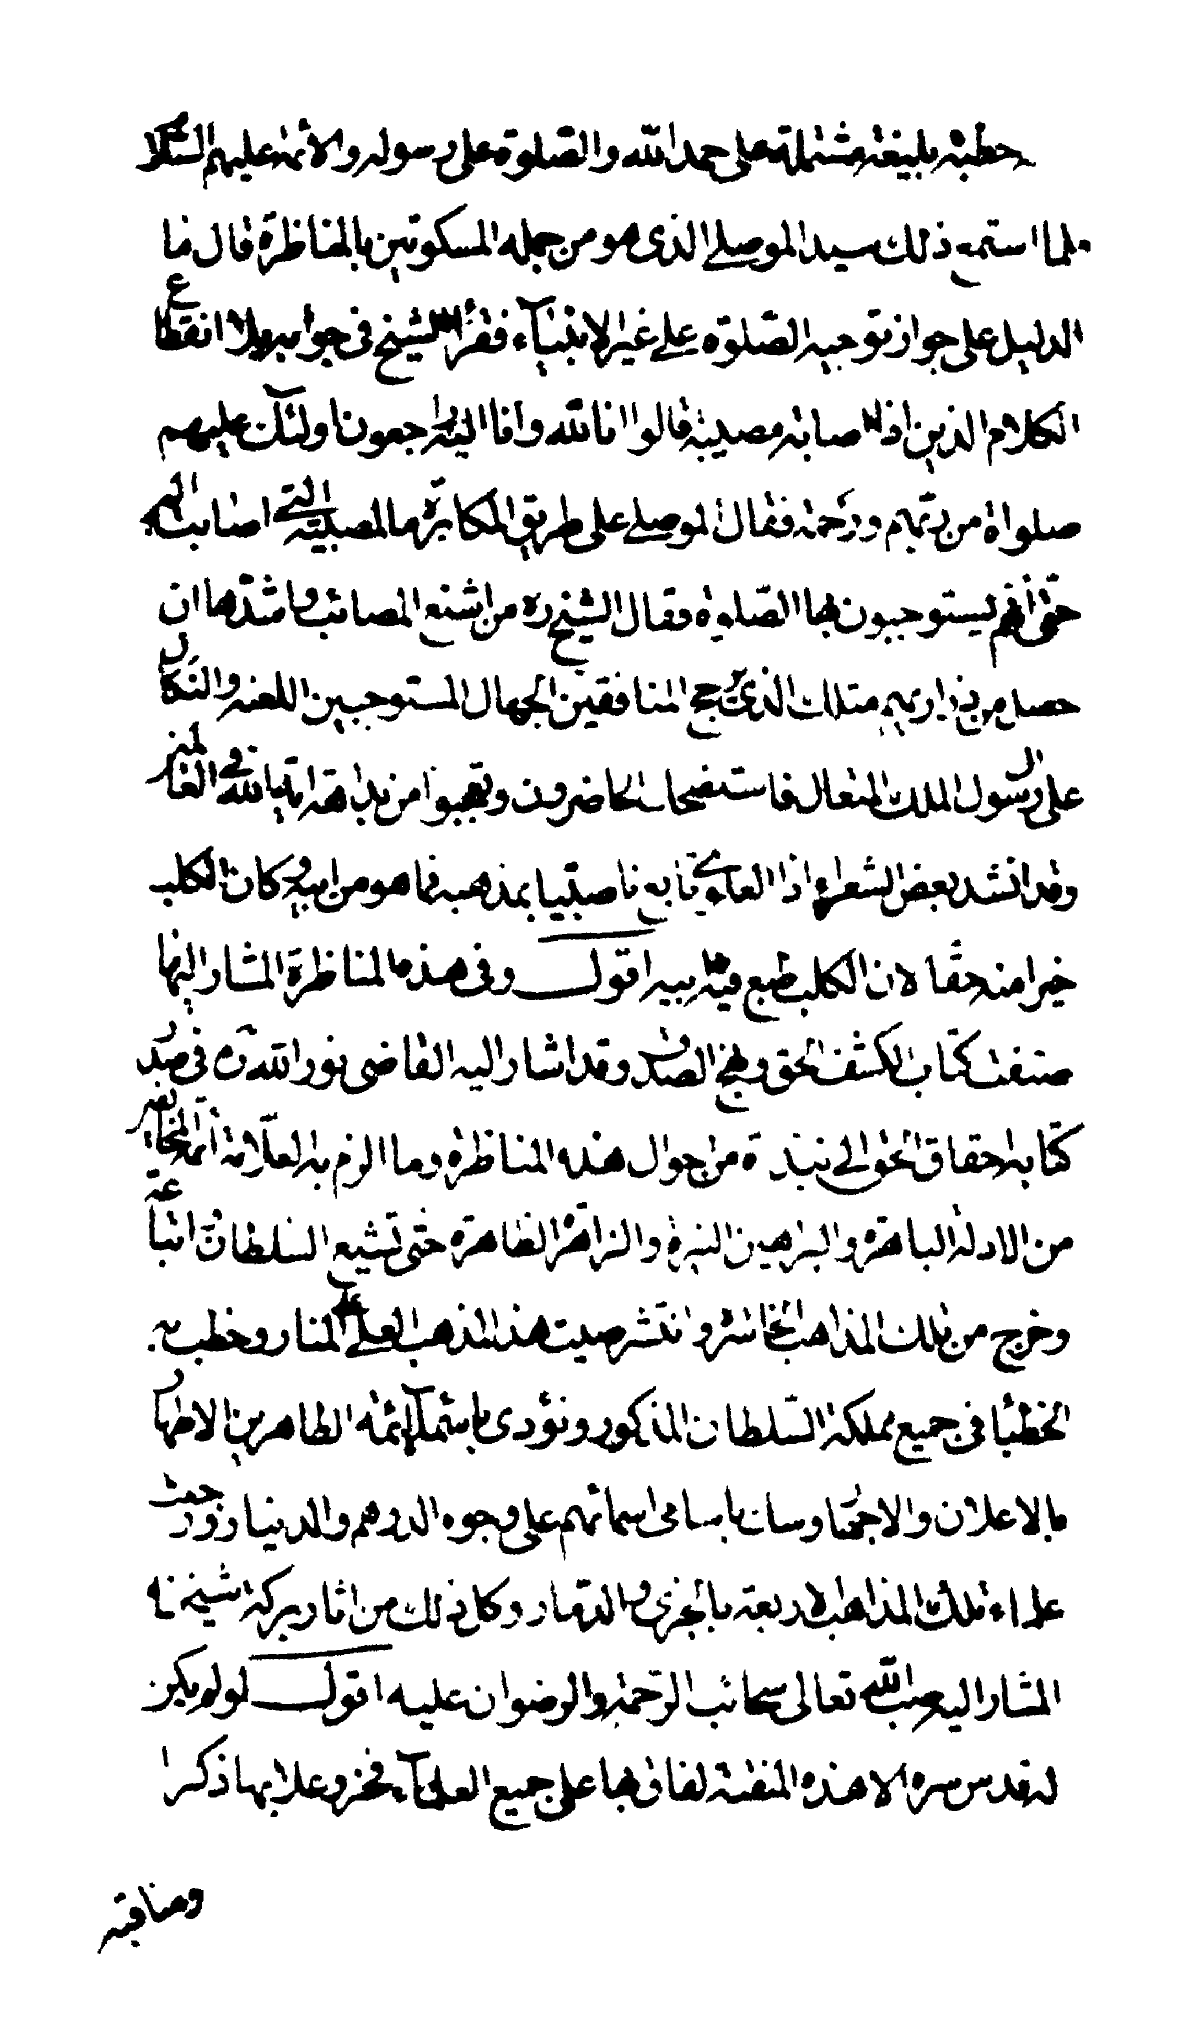 خطبة بليغة مشتملة على حمد الله والصّلوة على رسوله والائمة عليهم السّلا
فلما استمع ذلك سيد الموصلي الذى هو من جمله المسكوتين بالمناظرة قال ما
الدليل على جواز توجيه الصّلوة على غير الانبيآء فقرأ الشيخ فى جوابه بلا انقطاع
الكلام الذين اذا اصابته مصيبة قالوا انا لله وانا اليه راجعون اولئك عليهم
صلواة من ربّهم ورحمة فقال الموصلي على طريق المكابرة ما المصيبة التى اصابت اليهم
حتى أنهم يستوجبون بها الصّلوة فقال الشيخ ره من اشنع المصائب واشدّها ان
حصل من ذراريهم مثلك الذى يرجح المنافقين الجهال المستوجبين اللعنة والنكال
على رسول الملك المتعال فاستضحك الحاضرون وتعجبوا من بداهة اية الله فى العالمين
وقد انشد بعض الشعراء اذا العلوى تابع ناصبيا بمذهبه فما هو من ابيه وكان الكلب
خيرا منه حقا لان الكلب طبع ابيه فيه اقول وفى هذه المناظرة المشار اليها
صنف كتاب الكشف الحق ونهج الصدق وقد اشار اليه القاضى نور الله ره فى صدر
كتابه احقاق الحق الى نبذة من احوال هذه المناظرة وما الزم به العلّامة أئمة المخالفين
من الادلة الباهرة والبراهين النيرة والزاهرة الظاهرة حتى تشيع السلطان اتباعه
وخرج من تلك المذاهب الخاسرة وانتشر صيت هذا المذهب العلي المنار وخطب به
الخطبا فى جميع مملكة السّلطان المذكور ونودى باسماء الائمة الطاهرين الاطهار
بالاعلان والاجهار وسك باسامى اسمائهم على وجوه الدرهم والدينار ورجعت
علماء تلك المذاهب الاربعة بالخزى والدمار وكل ذلك من اثار بركة شيخنا
المشار اليه صب الله تعالى سحائب الرّحمة والرضوان عليه اقول لو لم يكن
له قدس سره الا هذه المنقبة لفاق بها على جميع العلمآء فخرا وعلا بها ذكرا
ومناقبه